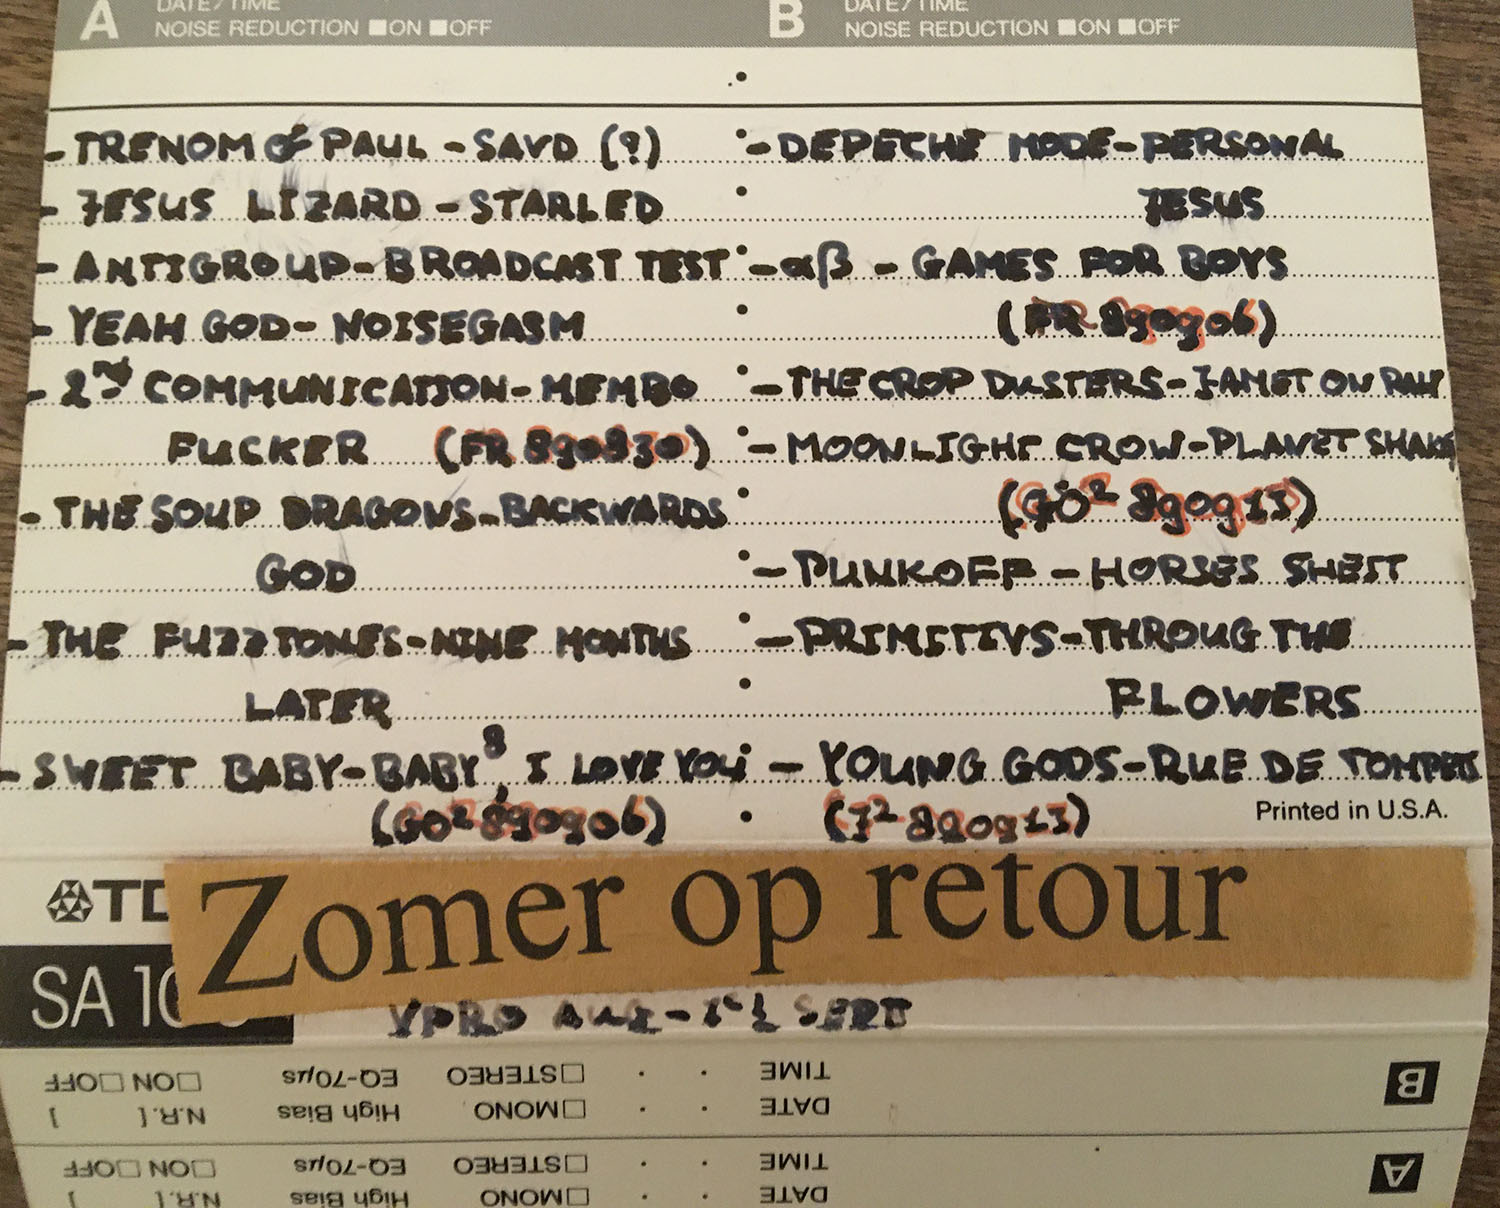 A DATE/TIME
NOISE REDUCTION ■ON ■OFF
B DATE/TIME
NOISE REDUCTION ■ON ■OFF
- TRENOM OF PAUL - SAVD (?)
- JESUS LIZARD - STARLED
- ANTIGROUP - BROADCAST TEST
- YEAH GOD - NOISEGASM
- 2nd COMMUNICATION - MEMBO
FUCKER (FR 890830)
- THE SOUP DRAGONS - BACKWARDS
GOD
- THE FUZZTONES - NINE MONTHS
LATER
- SWEET BABY - BABY, I LOVE YOU
(GO² 890906)
- DEPECHE MODE - PERSONAL
JESUS
- αβ - GAMES FOR BOYS
(FR 890906)
- THE CROP DUSTERS - I AMET ON RAW
- MOONLIGHT CROW - PLANET SHAKE
(GO² 890913)
- PUNKOFF - HORSES SHEIT
- PRIMITIVS - THROUG THE
FLOWERS
- YOUNG GODS - RUE DE TOMPETS
(J² 890913)
Printed in U.S.A.
Zomer op retour
SA 10
VPRO AUG - SEPT
B DATE · · □MONO High Bias N.R. [ ]
TIME · · □STEREO EQ-70µs □ON □OFF
A DATE · · □MONO High Bias N.R. [ ]
TIME · · □STEREO EQ-70µs □ON □OFF